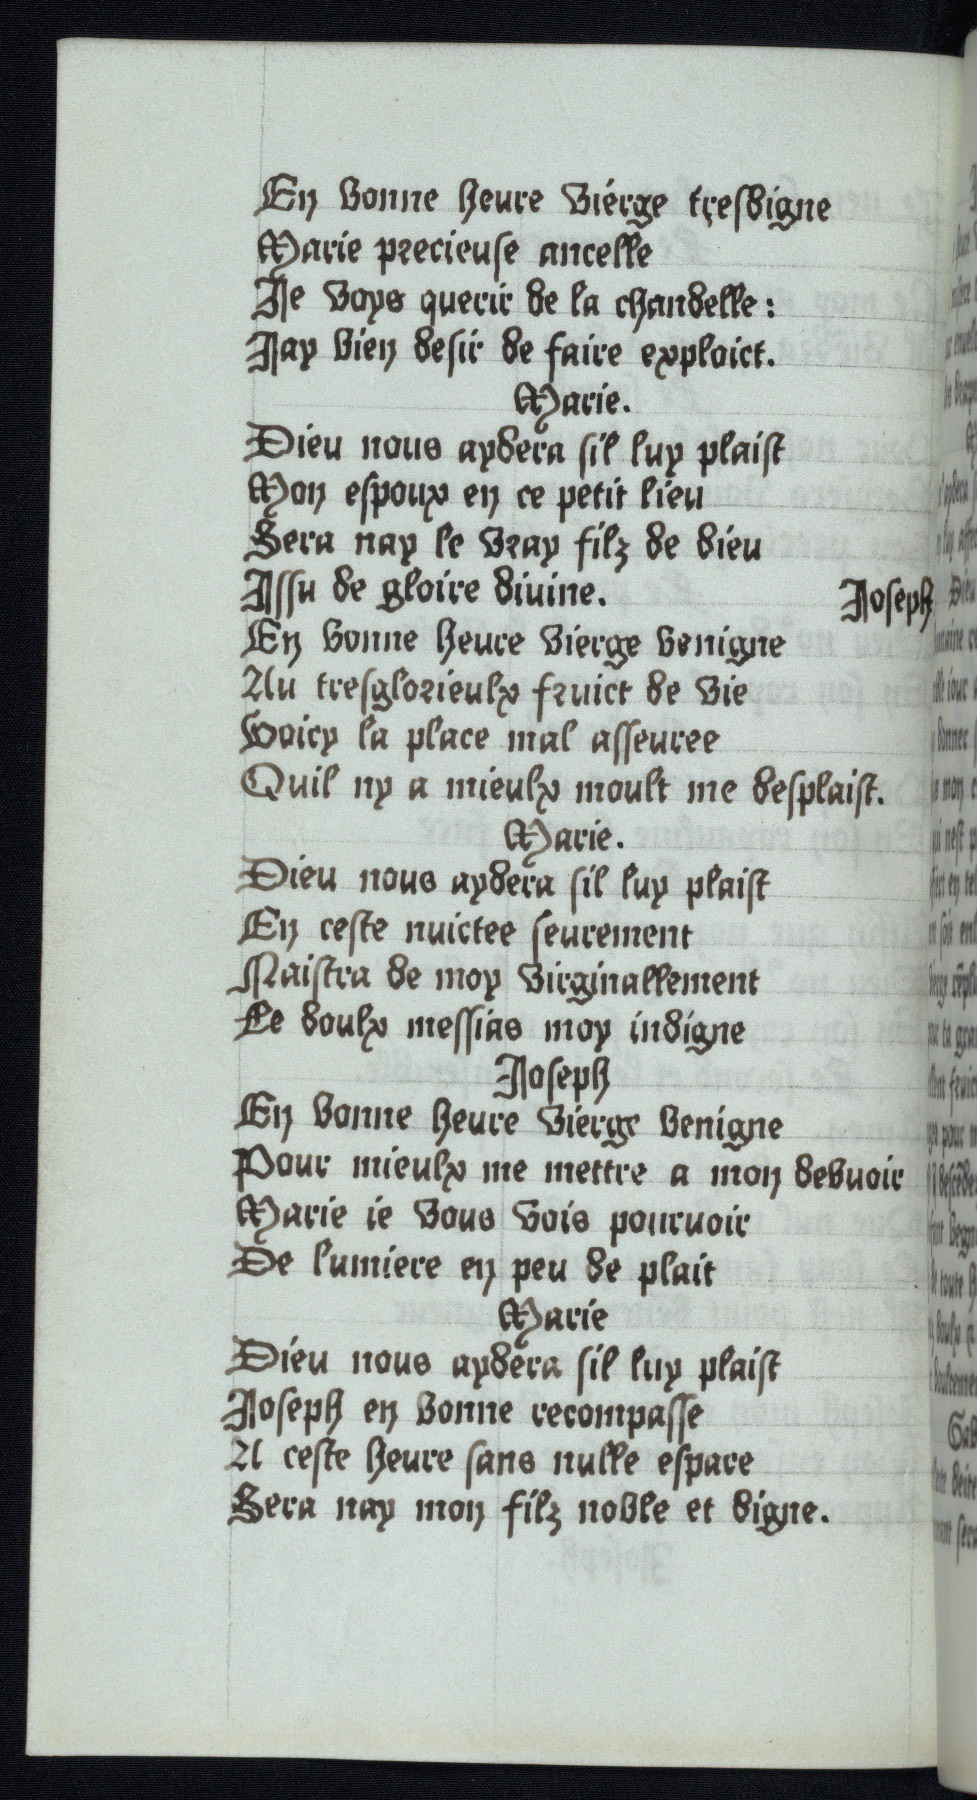 En bonne heure vierge tresdigne
Marie precieuse ancelle
Je voys querir de la chandelle :
Jay bien desir de faire exploict.
Marie.
Dieu nous aydera sil luy plaist
Mon espoux en ce petit lieu
Sera nay le vray filz de dieu
Issu de gloire divine.
Joseph
En bonne heure vierge benigne
Au tresglorieulx fruict de vie
Voicy la place mal asseuree
Quil ny a mieulx moult me desplaist.
Marie.
Dieu nous aydera sil luy plaist
En ceste nuictee seurement
Naistra de moy virginallement
Le doulx messias moy indigne
Joseph
En bonne heure vierge benigne
Pour mieulx me mettre a mon debuoir
Marie ie vous vois pouruoir
De lumiere en peu de plait
Marie
Dieu nous aydera sil luy plaist
Joseph en bonne recompasse
A ceste heure sans nulle espace
Sera nay mon filz noble et digne.